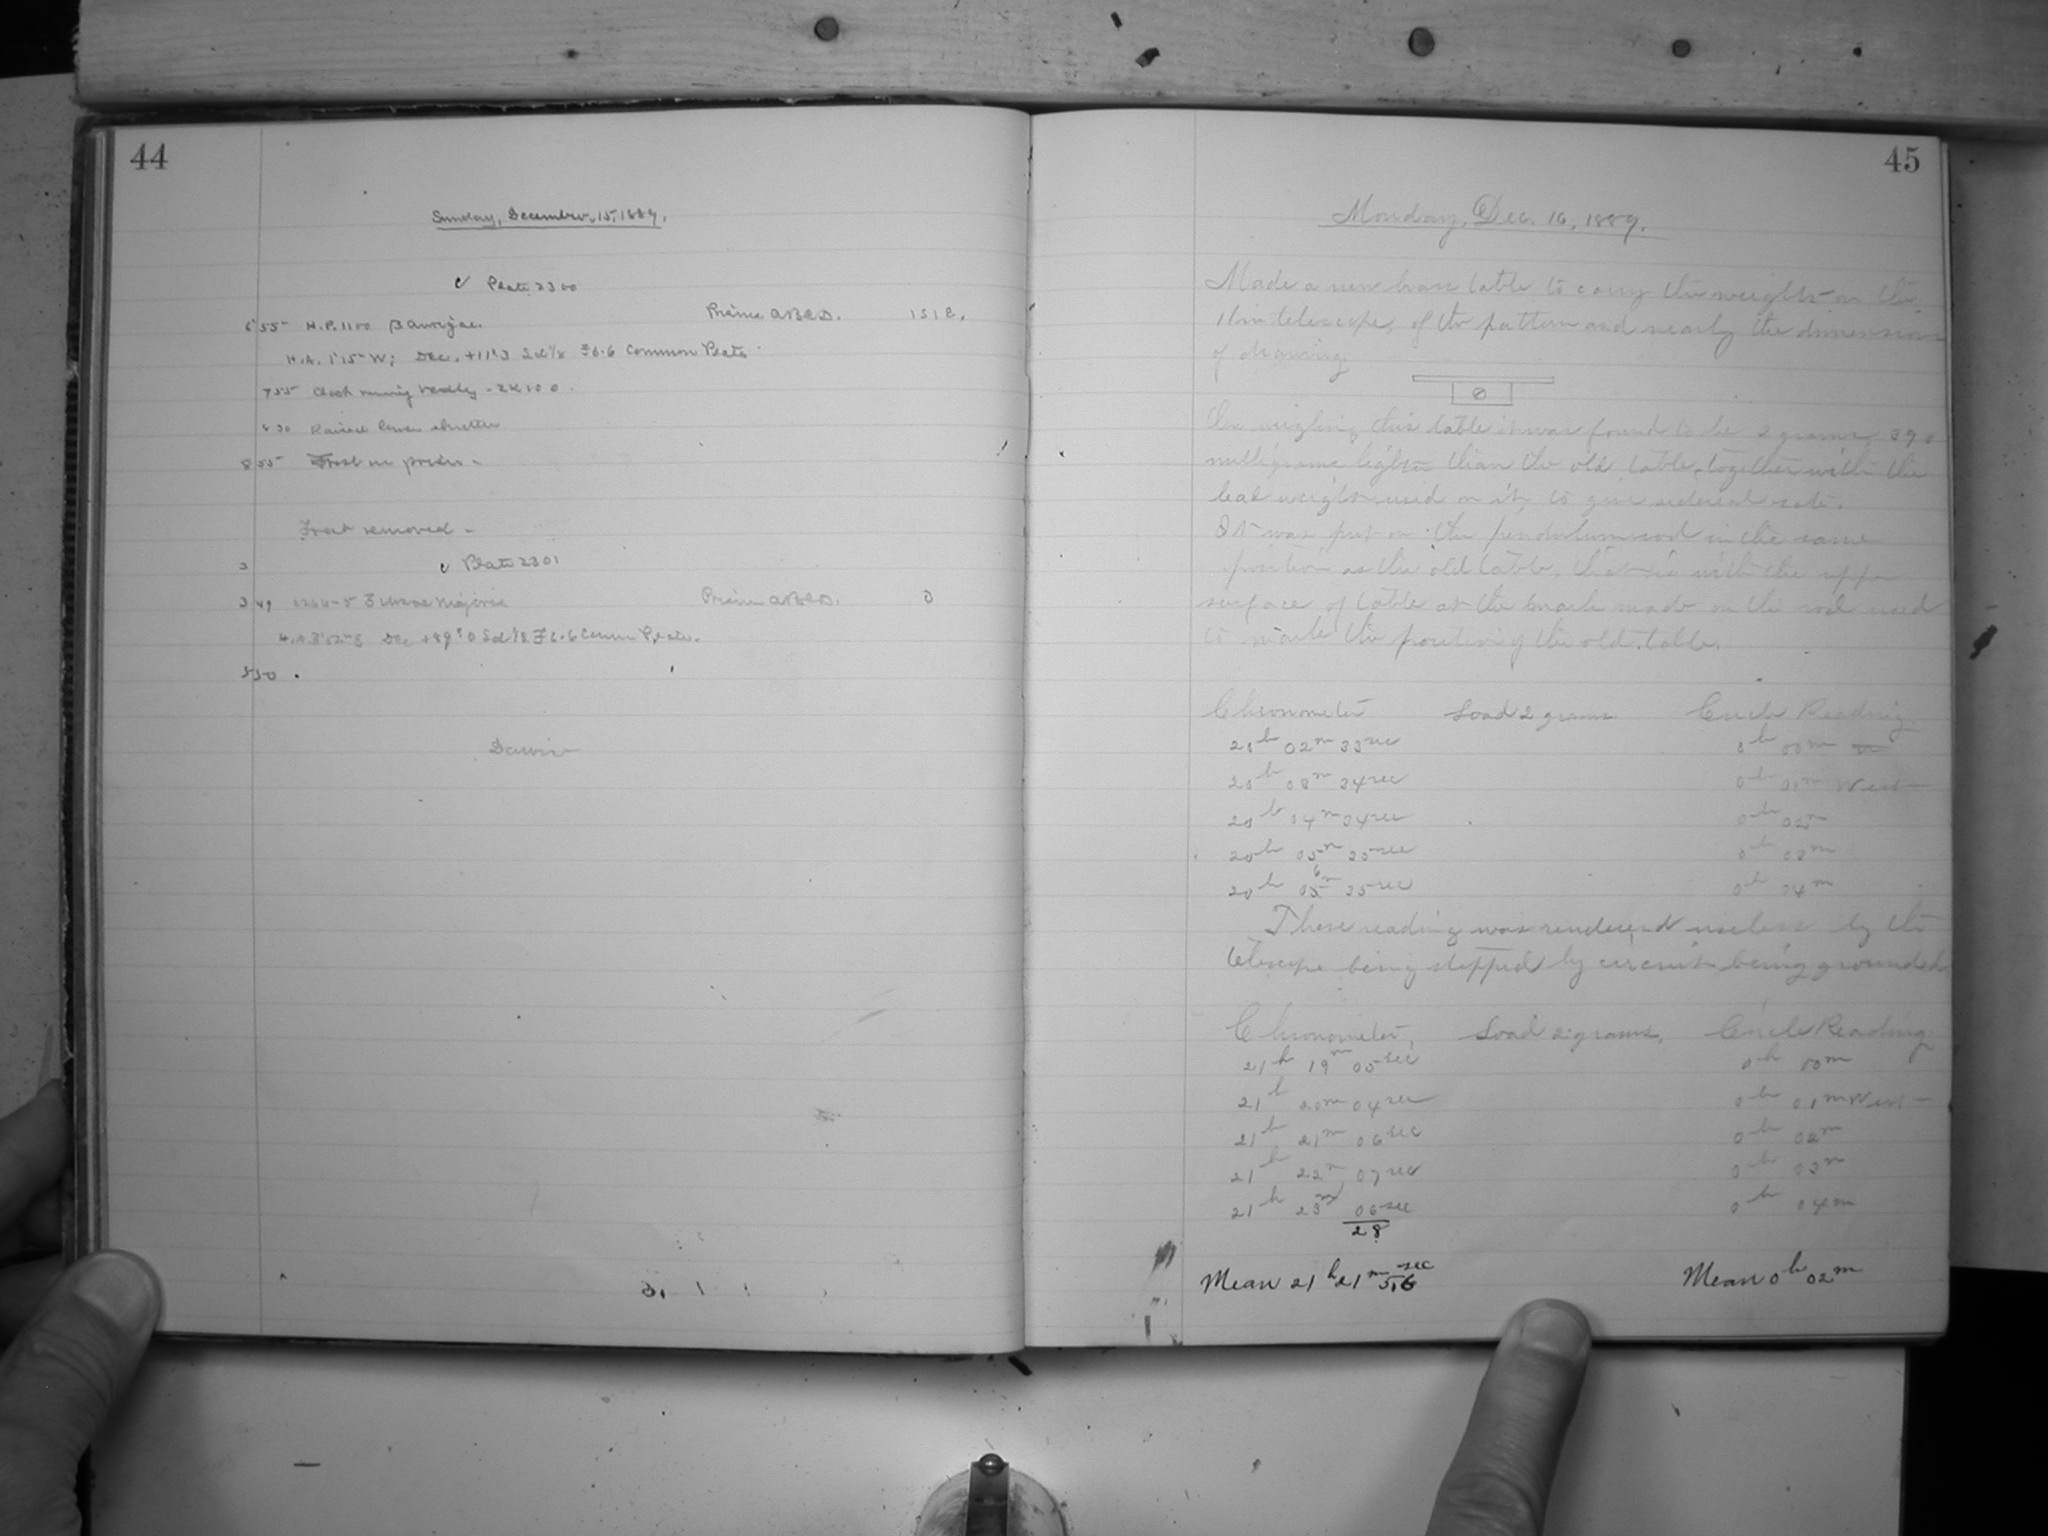 44
Sunday, December 15, 1889.
c Plate 2300
6 55 H.P. 1100 β Aurigae. Prisms A B C D. 1 S 1 E.
H.A. 1h 15m W; Dec. +11°.3 F 6.6 Common Plate
7 55 Clock running badly -
8 30 Raised lower shutter
8 55 Frost on prism -
Frost removed -
3 c Plate 2301
3 49 ζ Ursae Majoris Prisms A B C D. 0
Dec F 6.6 Common Plate.
5 30 .
45
Monday, Dec. 16, 1889.
Made a new brass table to carry the weights on the
11 in telescope, of the pattern and nearly the dimensions
of drawing.
On weighing this table it was found to be 2 grams, 390
milligrams lighter than the old table, together with the
lead weights used on it, to give sidereal rate.
It was put on the pendulum rod in the same
position as the old table, that is with the upper
surface of table at the mark made on the rod used
to mark the position of the old table.
Chronometer Load 2 grams Circle Reading
20h 02m 33sec 0h 00m
20h 03m 34sec 0h 01m West
20h 04m 34sec 0h 02m
20h 05m 35sec 0h 03m
6
20h 05m 35sec 0h 04m
These reading was renderend useless by the
telescope being stopped by circuit being grounded
Chronometer, Load 2 grams, Circle Reading
21h 19m 05sec 0h 00m
21h 20m 04sec 0h 01m West
21h 21m 06sec 0h 02m
21h 22m 07sec 0h 03m
21h 23m 06sec 0h 04m
28
Mean 21h 21m 5.6sec Mean 0h 02m